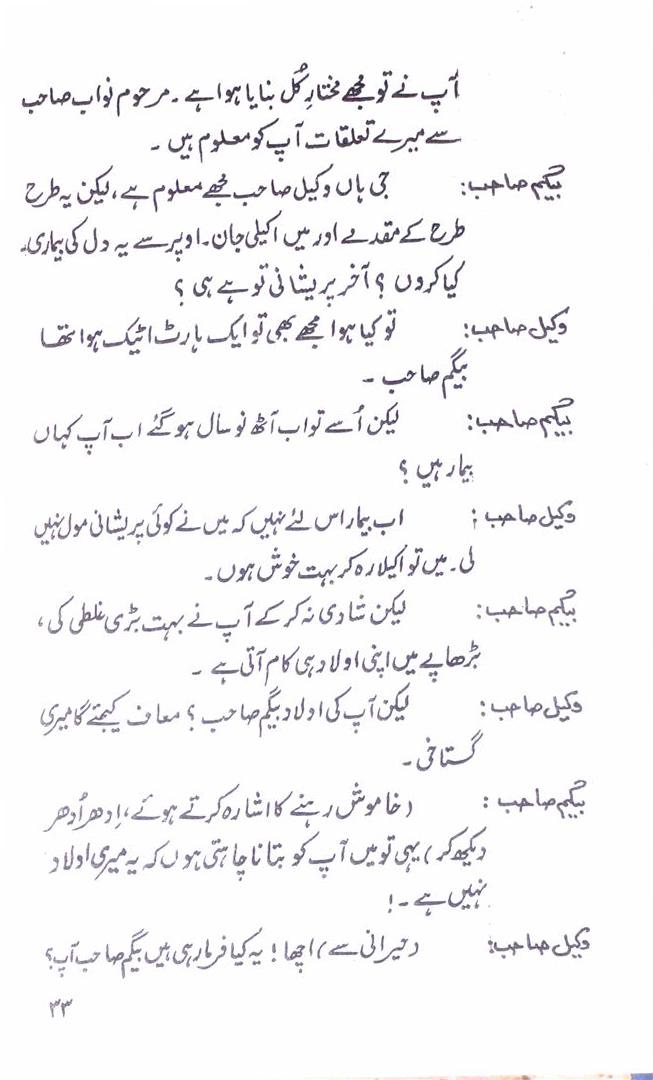 آپ نے تو مجھے مختارِ کُل بنایا ہوا ہے ۔ مرحوم نواب صاحب
سے میرے تعلقات آپ کو معلوم ہیں ۔
بیگم صاحب: جی ہاں وکیل صاحب مجھے معلوم ہے، لیکن یہ طرح
طرح کے مقدمے اور میں اکیلی جان۔ اوپر سے یہ دل کی بیماری۔
کیا کروں ؟ آخر پریشانی تو ہے ہی ؟
وکیل صاحب: تو کیا ہوا مجھے بھی تو ایک ہارٹ اٹیک ہوا تھا
بیگم صاحب ۔
بیگم صاحب: لیکن اُسے تو اب آٹھ نو سال ہو گئے اب آپ کہاں
بیمار ہیں ؟
وکیل صاحب : اب بیمار اس لئے نہیں کہ میں نے کوئی پریشانی مول نہیں
لی۔ میں تو اکیلا رہ کر بہت خوش ہوں۔
بیگم صاحب: لیکن شادی نہ کر کے آپ نے بہت بڑی غلطی کی ،
بڑھاپے میں اپنی اولاد ہی کام آتی ہے ۔
وکیل صاحب : لیکن آپ کی اولاد بیگم صاحب ؟ معاف کیجئے گا میری
گستاخی ۔
بیگم صاحب : (خاموش رہنے کا اشارہ کرتے ہوئے، اِدھر اُدھر
دیکھ کر) یہی تو میں آپ کو بتانا چاہتی ہوں کہ یہ میری اولاد
نہیں ہے ۔!
وکیل صاحب: (حیرانی سے) اچھا ! یہ کیا فرما رہی ہیں بیگم صاحب آپ؟
۳۳